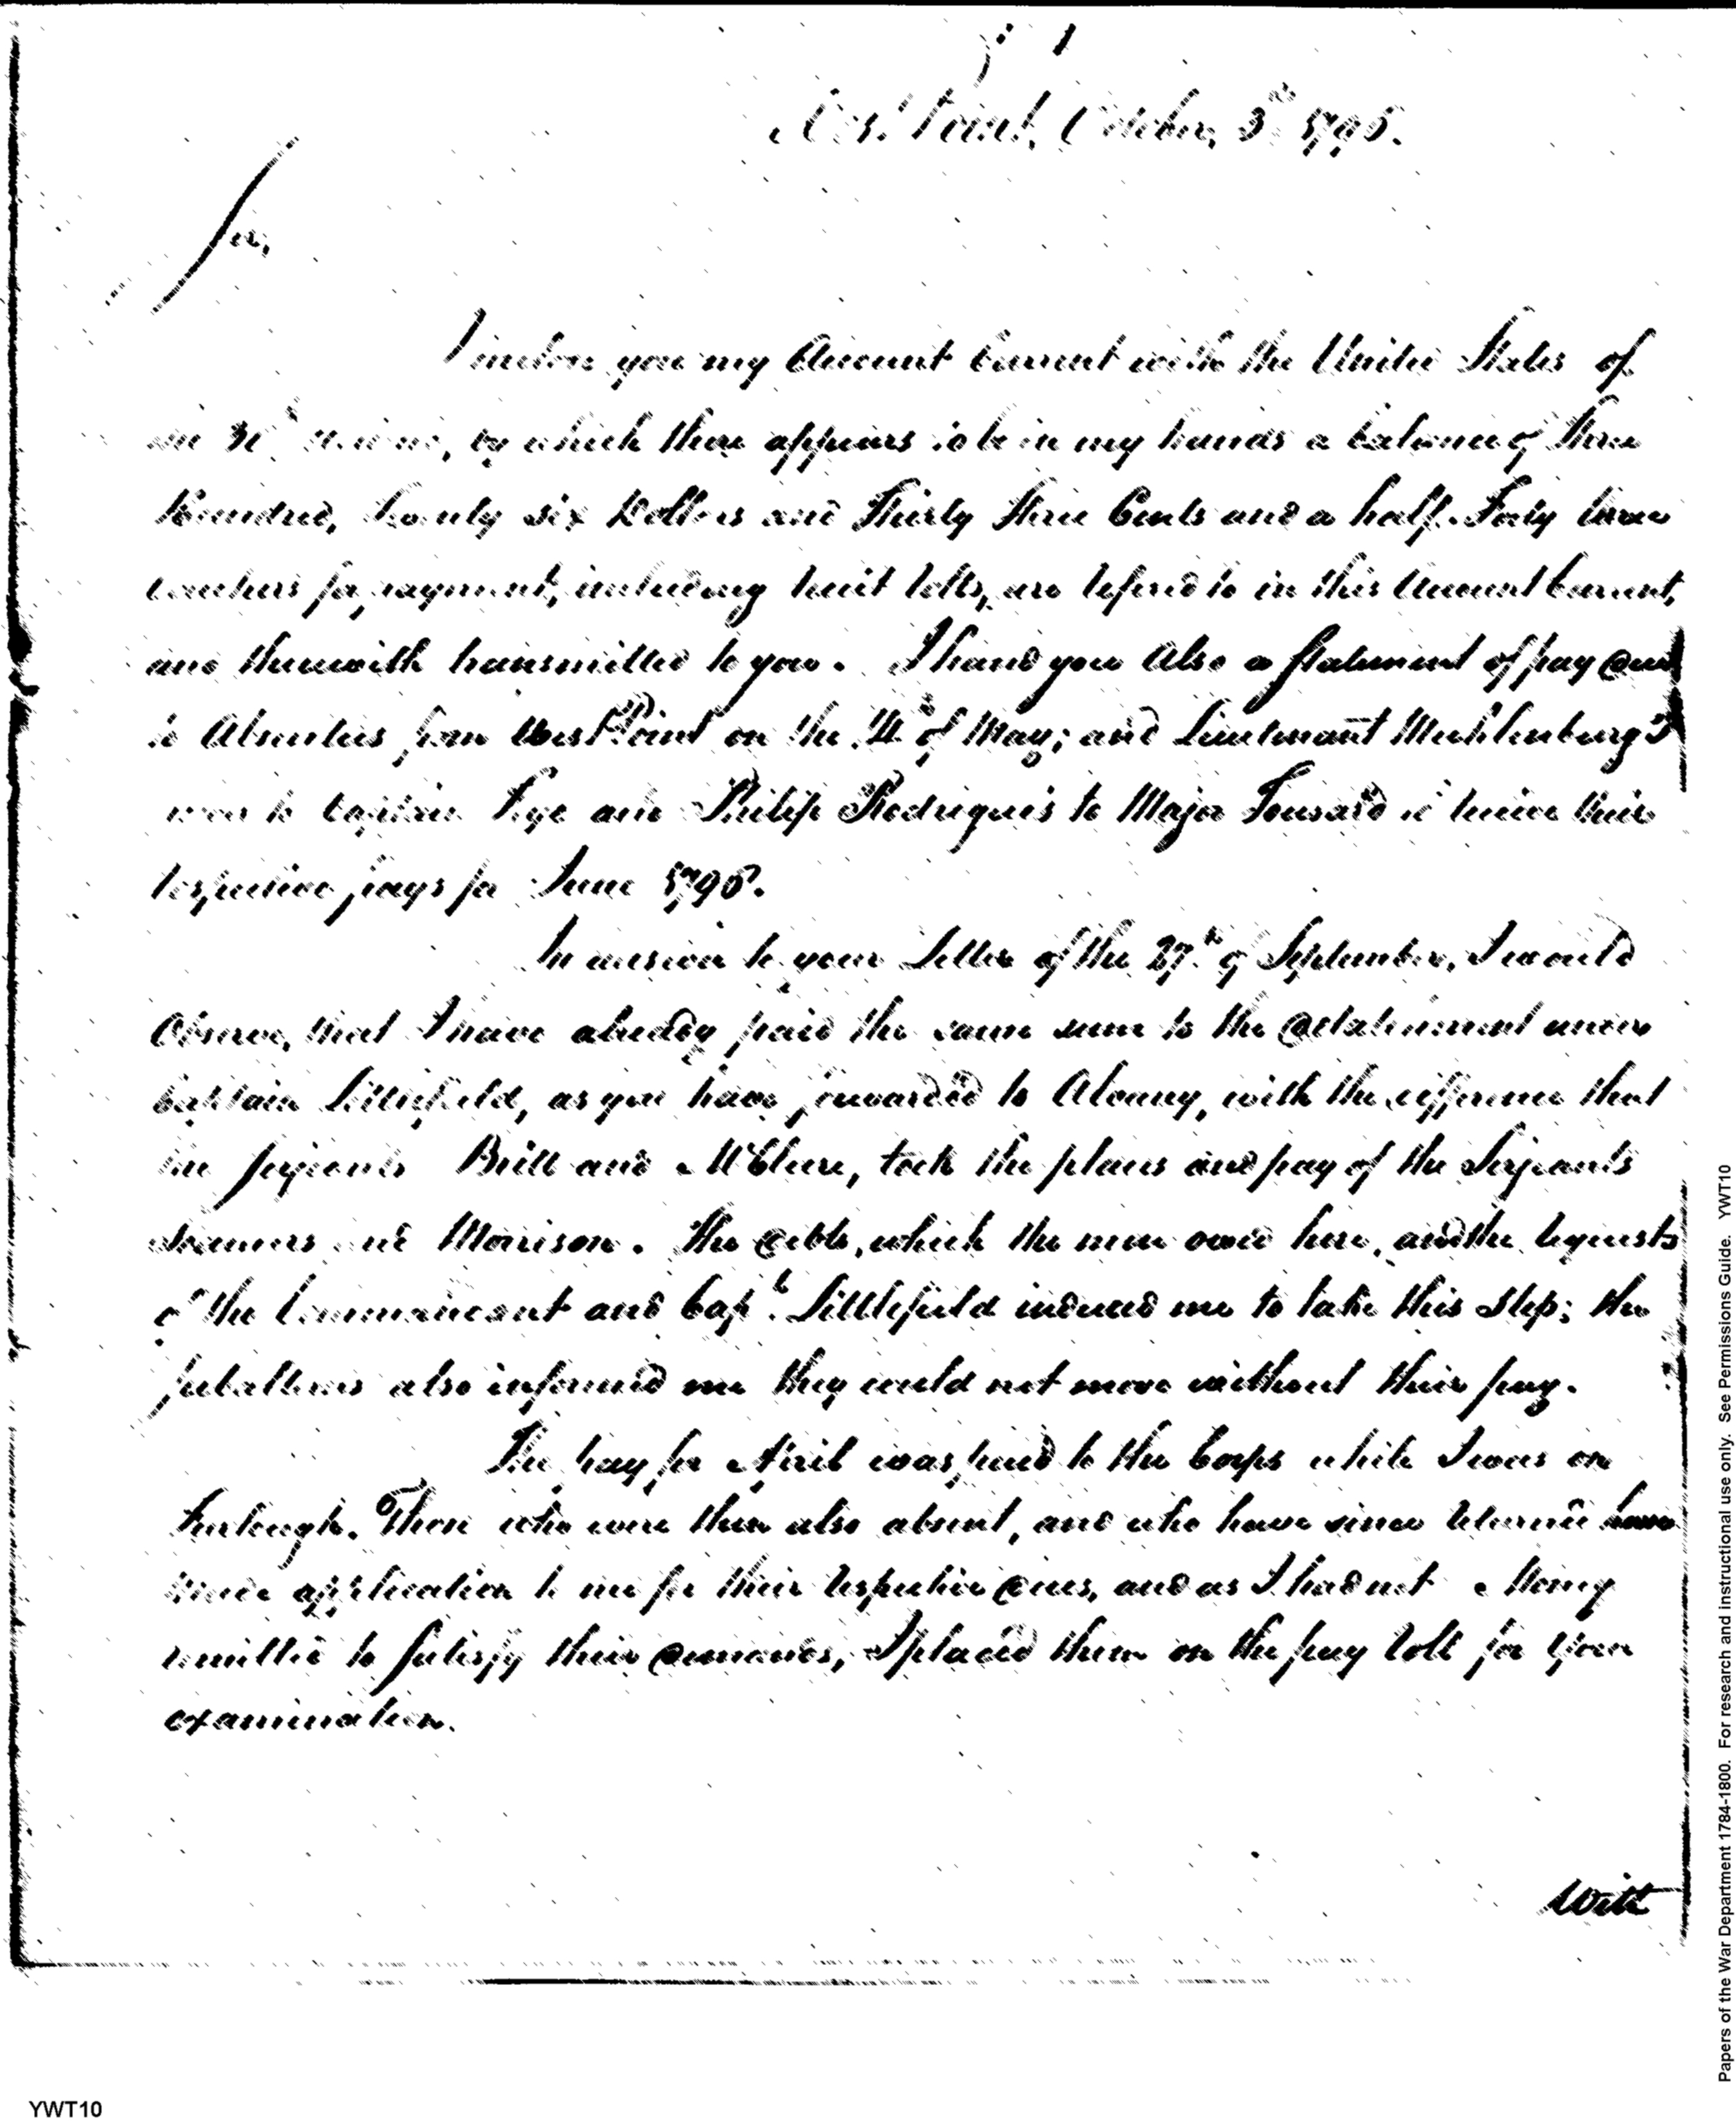 West Point, October, 3rd 1796.
Sir,
I inclose you my Account Current with the United States of
the 30th Ultimo, by which there appears to be in my hands a balance of three
hundred, twenty six Dollars and Thirty three Cents and a half. Forty three
vouchers for payment, including receit rolls, are refered to in this Account Current,
and therewith transmitted to you. I hand you Also a Statement of pay due
to Absentees from West Point on the of May; and Lieutenant Muhlenburg's
to Captain Frye and Philip Rodrigue's to Major Tousard to receive their
respective pays for June 1796.
In answer to your Letter of the 27th of September, I would
Observe, that I have already paid the same sum to the detatchment under
Captain Littlefield, as you have forwarded to Albany, with the difference that
the Serjeants Britt and McClure, took the places and pay of the Serjeants
and Morrison. The debts, which the men owed here, and the requests
of the Commandant and Capt. Littlefield induced me to take this step; the
subalterns also informed me they could not move without their pay.
The pay for April was paid to the Corps while I was on
Furlough. Those who were then also absent, and who have since returned have
made application to me for their respective dues, and as I had not Money
remitted to satisfy their demands, I placed them on the pay roll for your
examination.
With
YWT10
Papers of the War Department 1784-1800. For research and instructional use only. See Permissions Guide. YWT10